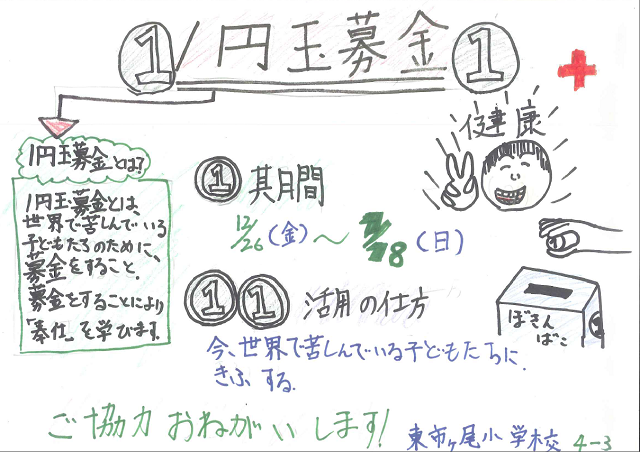 ① 1円玉募金 ①
1円玉募金とは?
1円玉募金とは、
世界で苦しんでいる
子どもたちのために、
募金をすること。
募金をすることにより
「奉仕」を学びます。
① 期間
12/26(金)〜1/18(日)
①① 活用の仕方
今、世界で苦しんでいる子どもたちに
きふする。
健康
ぼきん
ばこ
ご協力おねがいします!
東市ヶ尾小学校 4-3